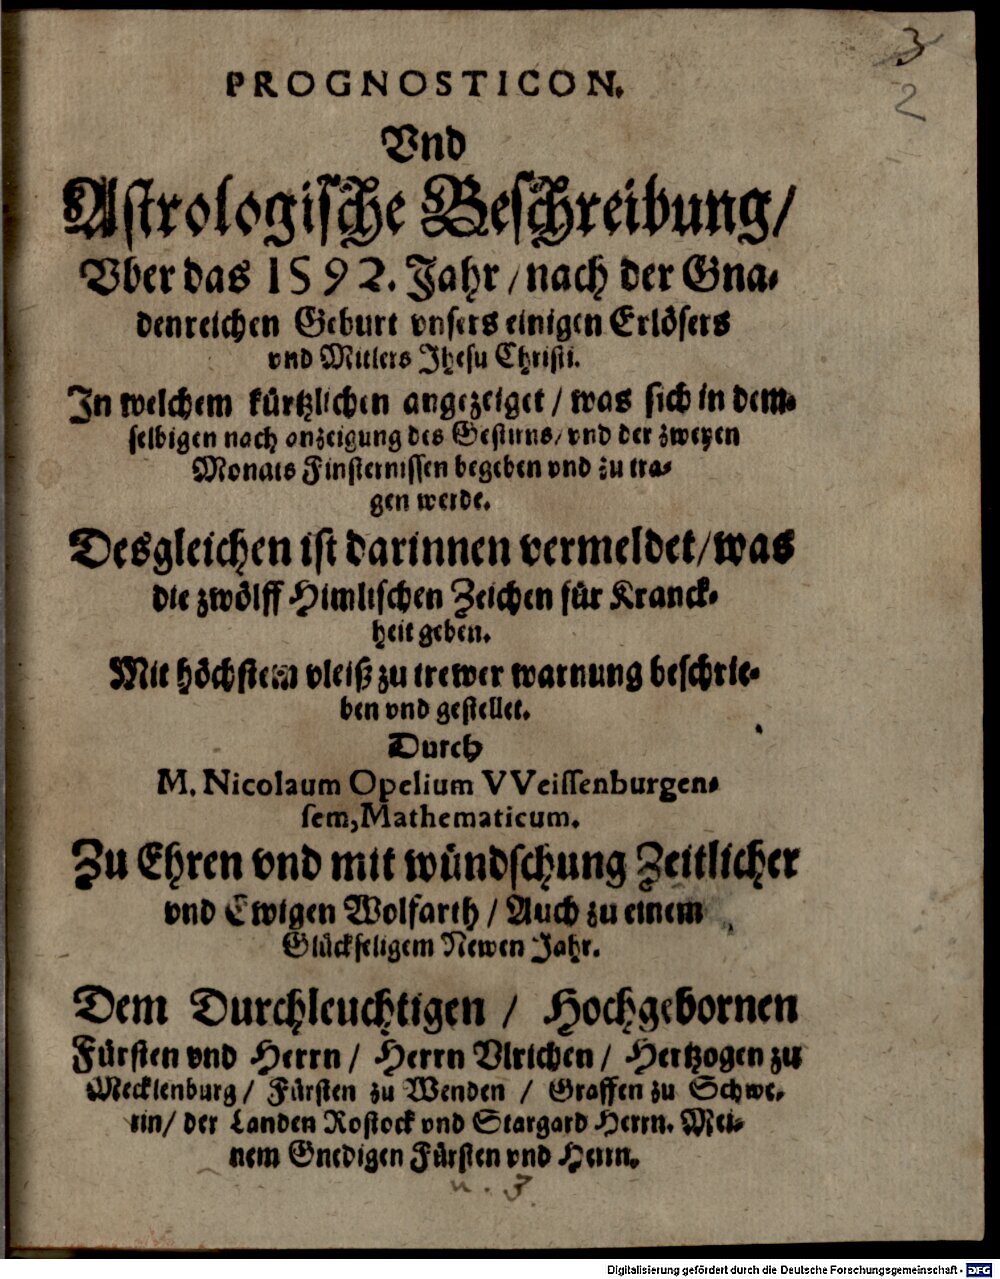 3
2
PROGNOSTICON.
Vnd
Astrologische Beschreibung/
Vber das 1592. Jahr/nach der Gna-
denreichen Geburt vnsers einigen Erlösers
vnd Mitlers Jhesu Christi.
In welchem kürtzlichen angezeiget/was sich in dem-
selbigen nach anzeigung des Gestirns/vnd der zweyen
Monats Finsternissen begeben vnd zu tra-
gen werde.
Desgleichen ist darinnen vermeldet/was
die zwölff Himlischen Zeichen für Kranck-
heit geben.
Mit höchstem vleiß zu trewer warnung beschrie-
ben vnd gestellet.
Durch
M. Nicolaum Opelium VVeissenburgen-
sem,Mathematicum.
Zu Ehren vnd mit wündschung Zeitlicher
vnd Ewigen Wolfarth/Auch zu einem
Glückseligem Newen Jahr.
Dem Durchleuchtigen/ Hochgebornen
Fürsten vnd Herrn/ Herrn Vlrichen/ Hertzogen zu
Mecklenburg/ Fürsten zu Wenden/ Graffen zu Schwe-
rin/ der Landen Rostock vnd Stargard Herrn. Mei-
nem Gnedigen Fürsten vnd Herrn.
n. 3.
Digitalisierung gefördert durch die Deutsche Forschungsgemeinschaft - DFG